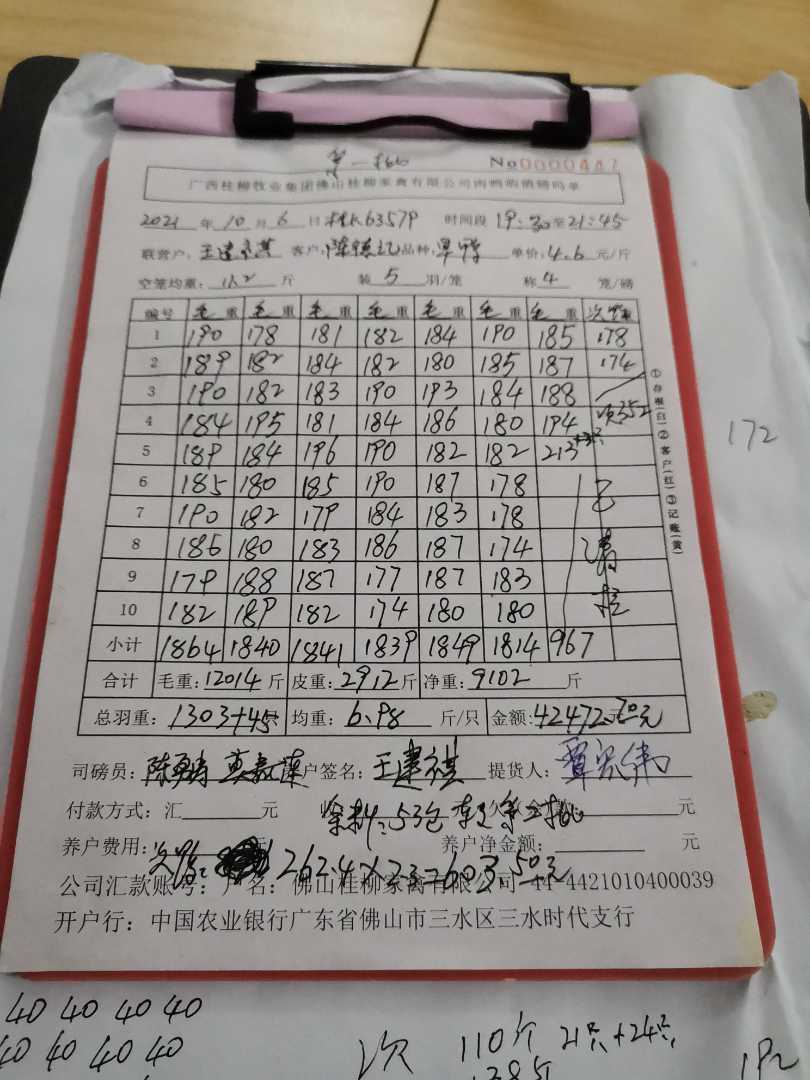 第一批
No 0000447
广西桂柳牧业集团佛山桂柳家禽有限公司肉鸭购销磅码单
2021 年 10 月 6 日 桂K6357P 时间段 19:30 至 21:45
联营户: 王建 客户: 品种: 单价: 4.6 元/斤
空笼均重: 斤 装 5 羽/笼 称 4 笼/磅
编号 毛重 毛重 毛重 毛重 毛重 毛重 毛重 次
1 190 178 181 182 184 190 185 178
2 189 182 184 182 180 185 187 174
3 190 182 183 190 193 184 188
4 184 195 181 184 186 180 194 352
5 189 184 196 190 182 182 213
6 185 180 185 190 187 178
7 190 182 179 184 183 178
8 186 180 183 186 187 174
9 179 188 187 177 187 183
10 182 189 182 174 180 180
已清栏
小计 1864 1840 1841 1839 1849 1814 967
合计 毛重: 12014 斤 皮重: 2912 斤 净重: 9102 斤
总羽重: 1303+45只 均重: 6.98 斤/只 金额: 42472元
①存根(白)②客户(红)③记账(黄)
172
司磅员: 户签名: 王建 提货人:
付款方式: 汇 元 余料: 53包 款 元
养户费用: 元 养户净金额: 元
262.4×2.3=603.50元
公司汇款账号: 户名: 佛山桂柳家禽有限公司 44-4421010400039
开户行: 中国农业银行广东省佛山市三水区三水时代支行
40 40 40 40
40 40 40 40
次 110斤 21只+24只
138斤
192